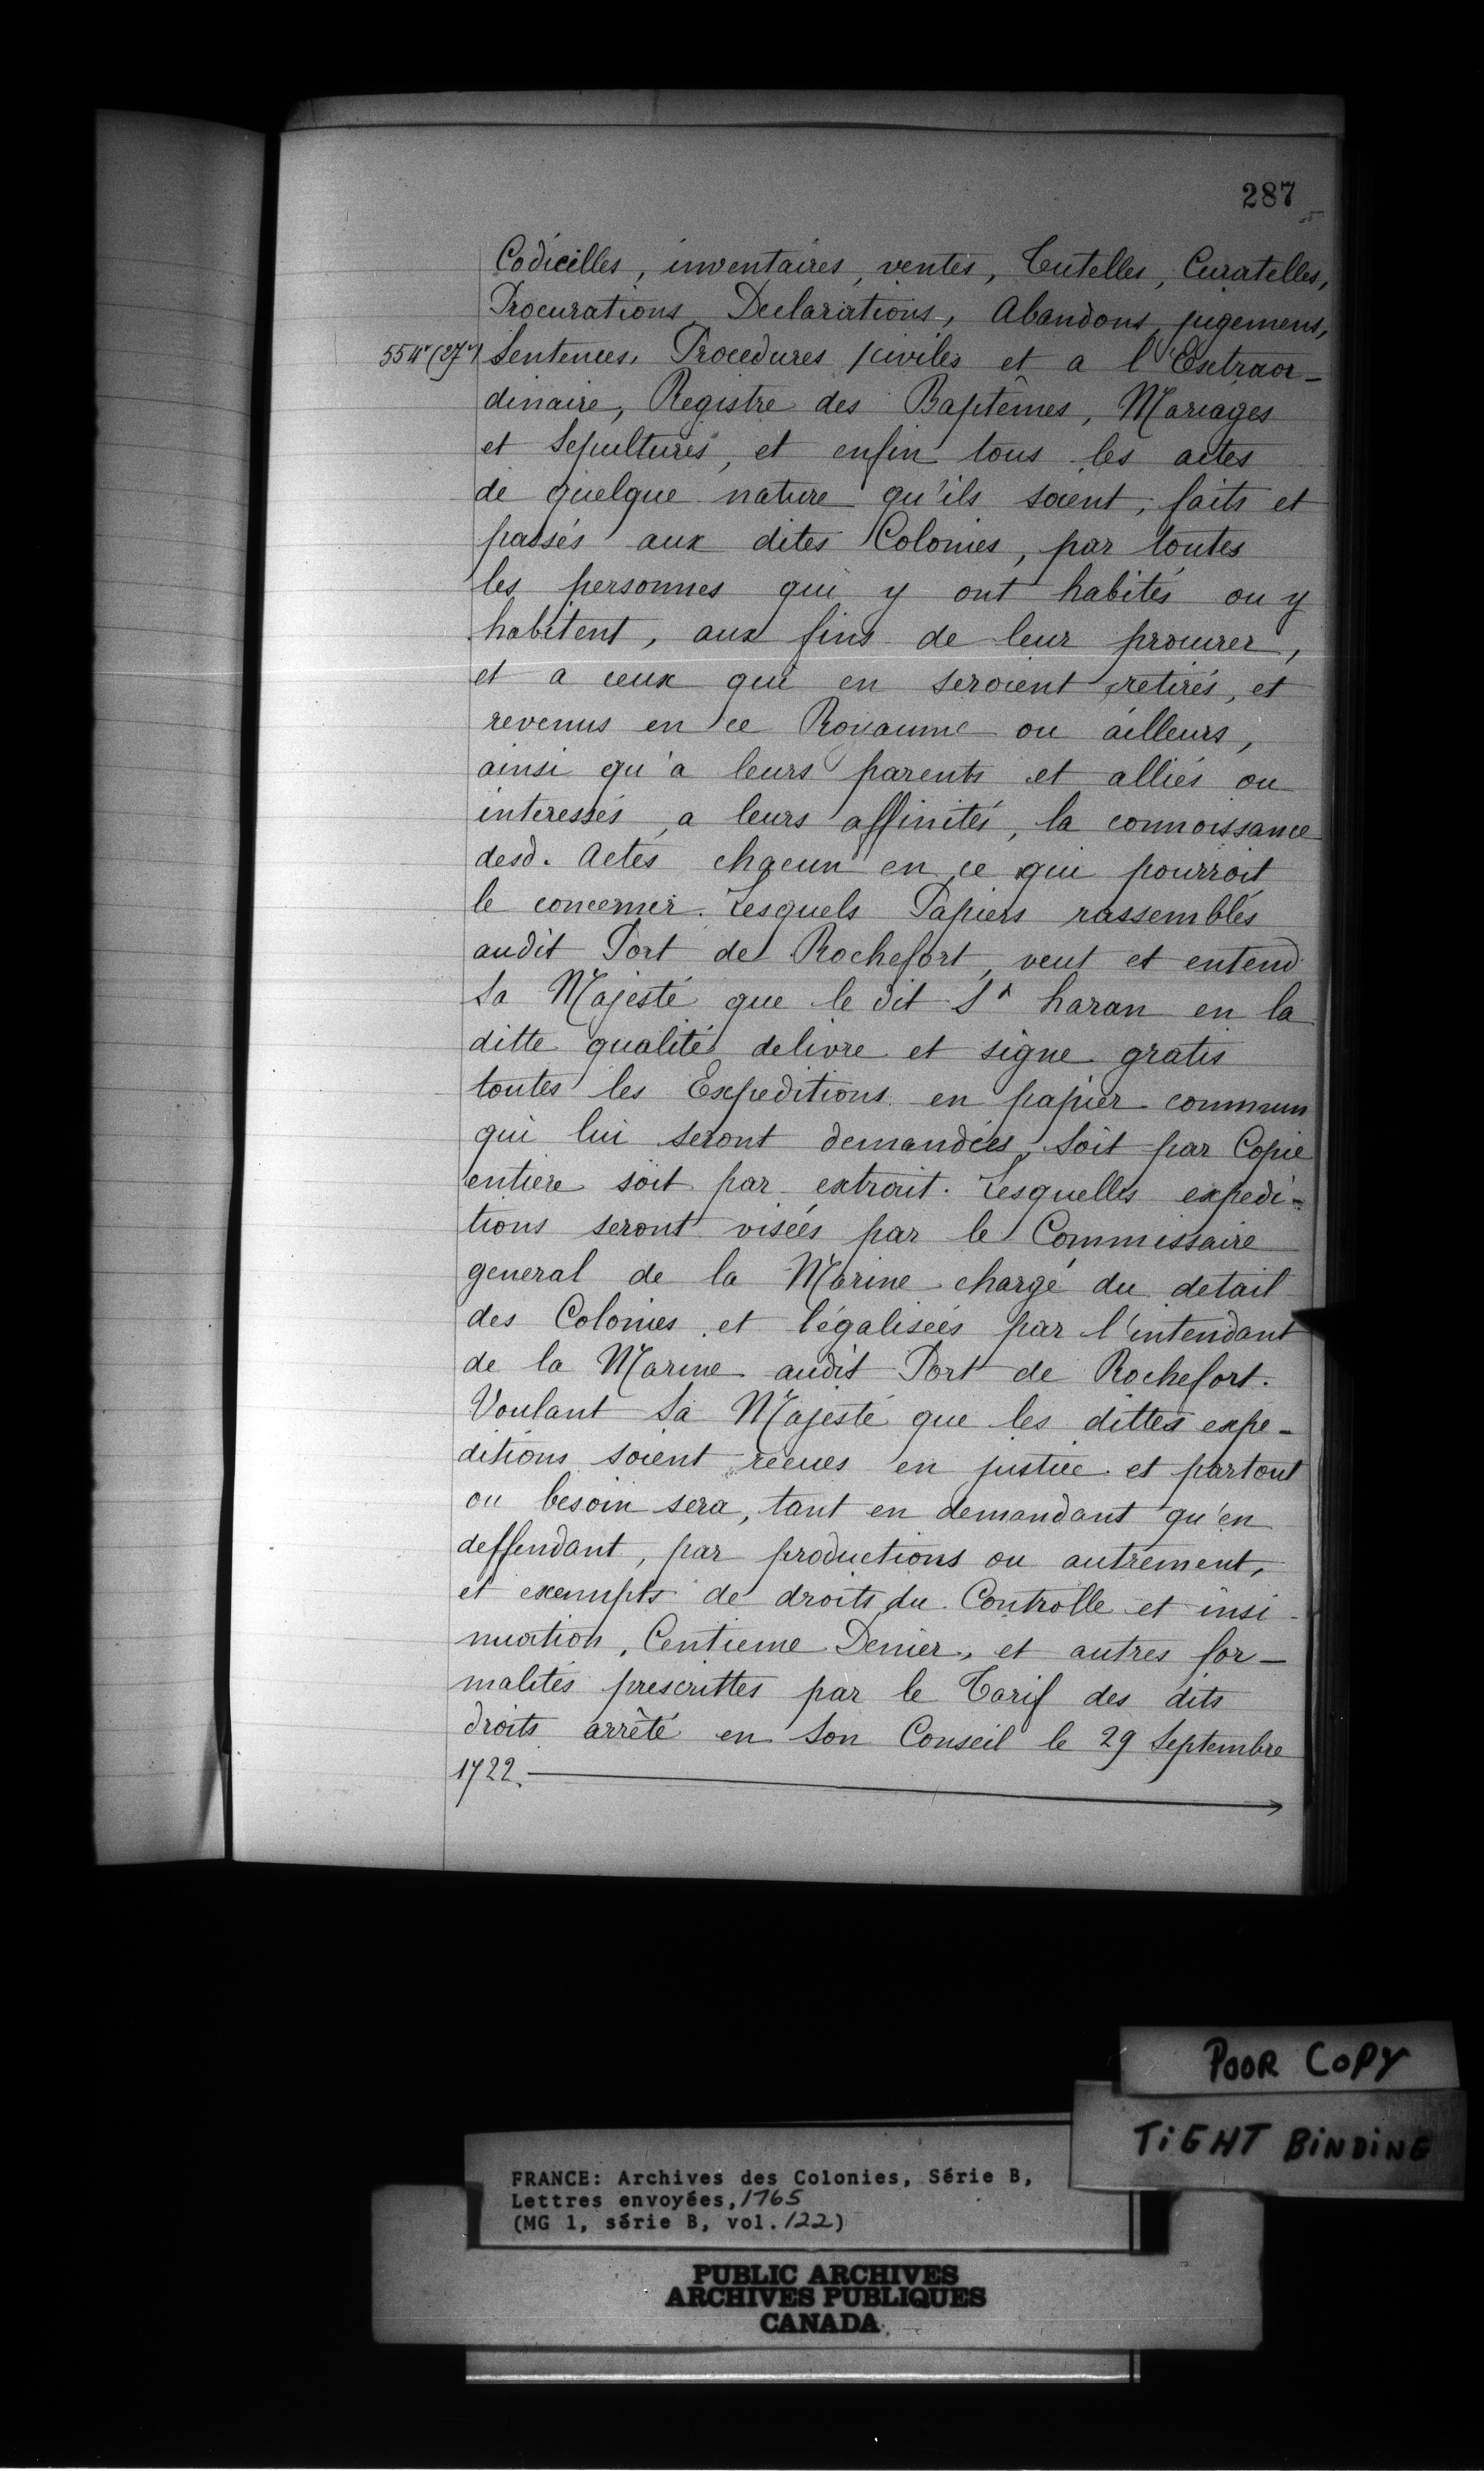 287
Codicilles, inventaires, ventes, Tutelles, Curatelles,
Procurations, Declarations, Abandons, jugemens,
Sentences, Procedures civiles et a l'Extraor-
dinaire, Registre des Baptêmes, Mariages
et Sepultures, et enfin tous les actes
de quelque nature qu'ils soient, faits et
passés aux dites Colonies, par toutes
les personnes qui y ont habités ou y
habitent, aux fins de leur procurer,
et a ceux qui en seroient retirés, et
revenus en ce Royaume ou ailleurs,
ainsi qu'a leurs parents et alliés ou
interessés a leurs affinités, la connoissance
desd. Actes chacun en ce qui pourroit
le concerner. Lesquels Papiers rassemblés
audit Port de Rochefort, veut et entend
Sa Majesté que le dit Sr haran en la
ditte qualité delivre et signe gratis
toutes les Expeditions en papier commun
qui lui seront demandées, soit par Copie
entiere soit par extrait. Lesquelles expedi-
tions seront visées par le Commissaire
general de la Marine chargé du detail
des Colonies et légalisées par l'intendant
de la Marine audit Port de Rochefort.
Voulant Sa Majesté que les dittes expe-
ditions soient recues en justice et partout
ou besoin sera, tant en demandant qu'en
deffendant, par productions ou autrement,
et exempts de droits du Controlle et insi-
nuation, Centieme Denier, et autres for-
malités prescrittes par le Tarif des dits
droits arrêté en Son Conseil le 29 Septembre
1722.
POOR COPY
TIGHT BINDING
FRANCE: Archives des Colonies, Série B,
Lettres envoyées, 1765
(MG 1, série B, vol. 122)
PUBLIC ARCHIVES
ARCHIVES PUBLIQUES
CANADA